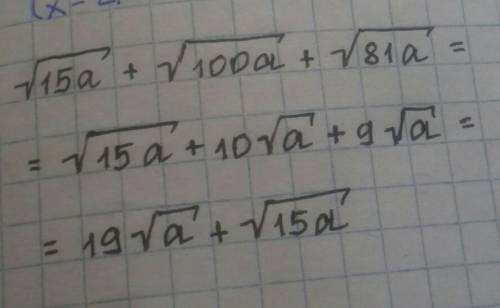 (x-2
√15a + √100a + √81a =
= √15a + 10√a + 9√a =
= 19√a + √15a